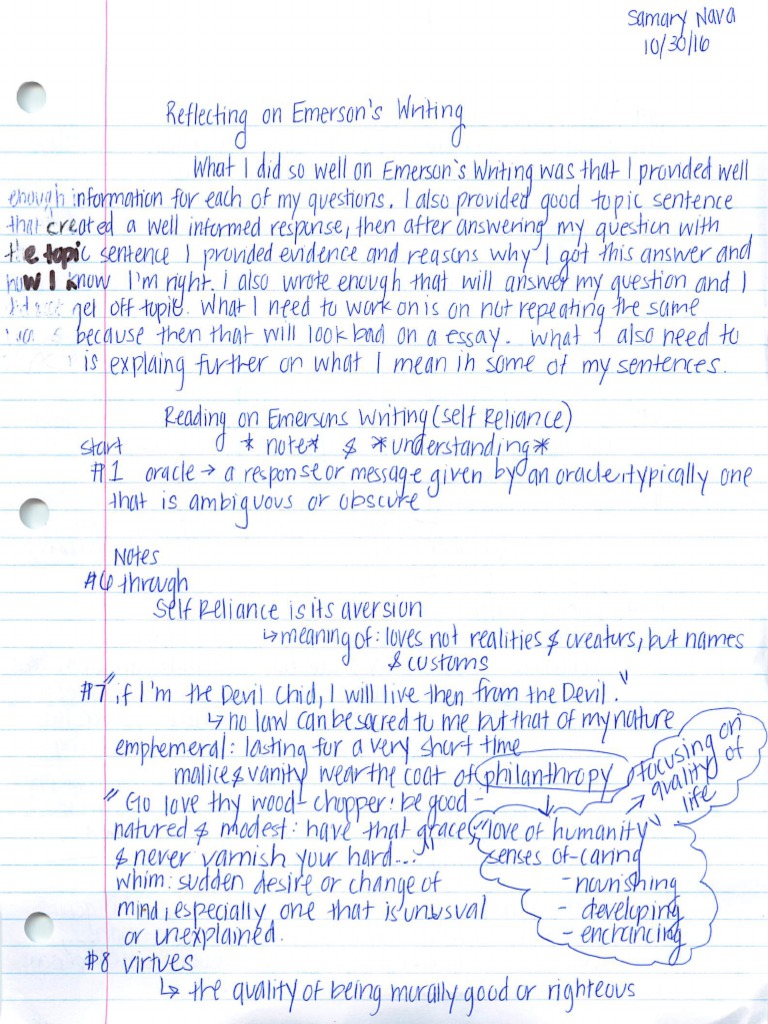 Samary Nava
10/30/16
Reflecting on Emerson's Writing
What I did so well on Emerson's Writing was that I provided well
enough information for each of my questions. I also provided good topic sentence
that created a well informed response, then after answering my question with
the topic sentence I provided evidence and reasons why I got this answer and
how I know I'm right. I also wrote enough that will answer my question and I
get off topic. What I need to work on is on not repeating the same
because then that will look bad on a essay. What I also need to
is explaing further on what I mean in some of my sentences.
Reading on Emersons Writing (Self Reliance)
start * note* & *understanding*
#1 oracle → a response or message given by an oracle, typically one
that is ambiguous or obscure
Notes
#6 through
Self Reliance is its aversion
↳ meaning of: loves not realities & creators, but names
& customs
#7 "if I'm the Devil Chid, I will live then from the Devil."
↳ no law can be sacred to me but that of my nature
emphemeral: lasting for a very short time
malice & vanity wear the coat of philanthropy
focusing on
quality of
life
"Go love thy wood-chopper: be good-
natured & modest: have that grace;
& never varnish your hard..."
"love of humanity"
senses of-caring
- nourishing
- developing
- enchancing
whim: sudden desire or change of
mind, especially one that is unusual
or unexplained.
#8 virtues
↳ the quality of being morally good or righteous